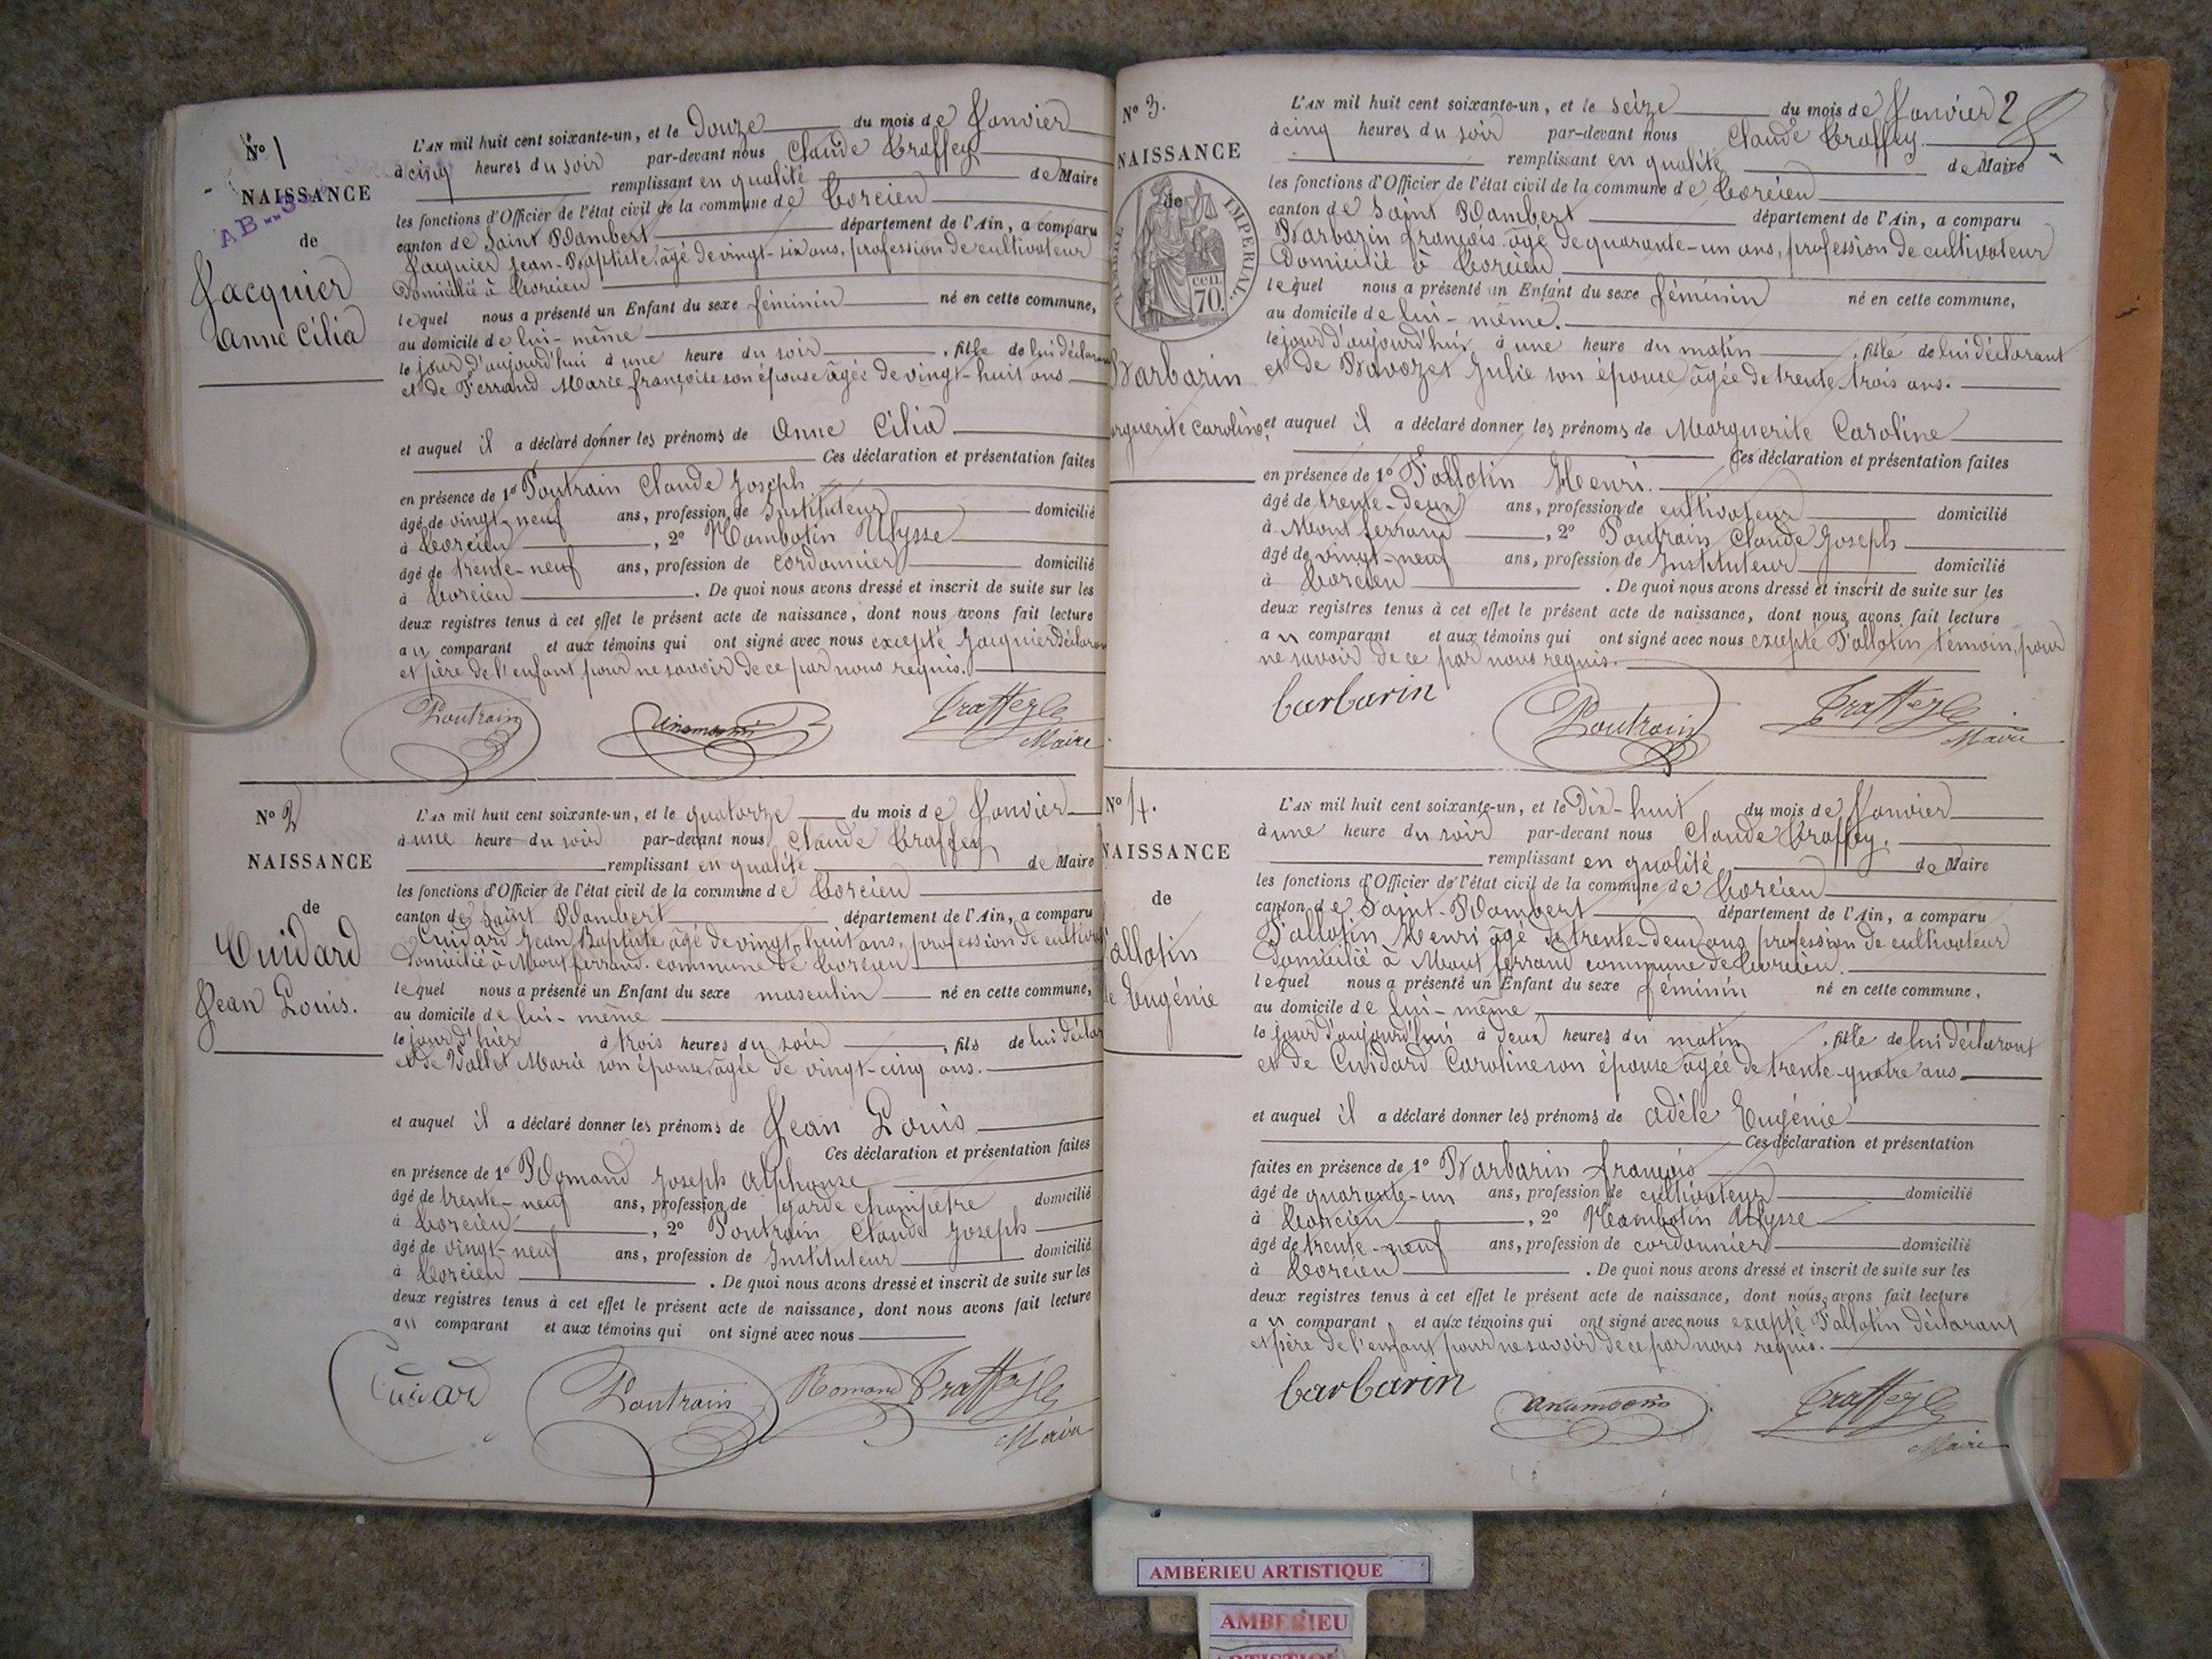 N° 1
NAISSANCE
AB
de
Jacquier
Anne Cilia
L'AN mil huit cent soixante-un, et le Douze du mois de Janvier
à cinq heures du soir par-devant nous Claude Traffey
remplissant en qualité de Maire
les fonctions d'Officier de l'état civil de la commune de Torcieu
canton de Saint Rambert département de l'Ain, a comparu
Jacquier Jean-Baptiste, âgé de vingt-six ans, profession de cultivateur
Domicilié à Torcieu
lequel nous a présenté un Enfant du sexe féminin né en cette commune,
au domicile de lui-même
le jour d'aujourd'hui à une heure du soir, fille de lui déclarant
et de Ferrand Marie françoise son épouse âgée de vingt-huit ans
et auquel il a déclaré donner les prénoms de Anne Cilia
Ces déclaration et présentation faites
en présence de 1° Poutrain Claude Joseph
âgé de vingt-neuf ans, profession de Instituteur domicilié
à Torcieu, 2° Hambotin Ulysse
âgé de trente-neuf ans, profession de cordonnier domicilié
à Torcieu. De quoi nous avons dressé et inscrit de suite sur les
deux registres tenus à cet effet le présent acte de naissance, dont nous avons fait lecture
au comparant et aux témoins qui ont signé avec nous excepté Jacquier Déclarant
et père de l'enfant pour ne savoir de ce par nous requis.
Poutrain Traffey Cle
Maire
N° 2
NAISSANCE
de
Cuidard
Jean Louis.
L'AN mil huit cent soixante-un, et le quatorze du mois de Janvier
à une heure du soir par-devant nous Claude Traffey
remplissant en qualité de Maire
les fonctions d'Officier de l'état civil de la commune de Torcieu
canton de Saint Rambert département de l'Ain, a comparu
Cuidard Jean Baptiste âgé de vingt-huit ans, profession de cultiv
Domicilié à Mont ferrand commune de Torcieu
lequel nous a présenté un Enfant du sexe masculin né en cette commune,
au domicile de lui-même
le jour d'hier à trois heures du soir, fils de lui déclar
et de Vallet Marie son épouse âgée de vingt-cinq ans.
et auquel il a déclaré donner les prénoms de Jean Louis
Ces déclaration et présentation faites
en présence de 1° Romand Joseph Alphonse
âgé de trente-neuf ans, profession de garde champêtre domicilié
à Torcieu, 2° Poutrain Claude Joseph
âgé de vingt-neuf ans, profession de Instituteur domicilié
à Torcieu. De quoi nous avons dressé et inscrit de suite sur les
deux registres tenus à cet effet le présent acte de naissance, dont nous avons fait lecture
au comparant et aux témoins qui ont signé avec nous
Cuidard Poutrain Romand Traffey Cle
Maire
2
N° 3.
NAISSANCE
de
TIMBRE IMPERIAL
cen.
70.
Barbarin
rguerite Caroline,
L'AN mil huit cent soixante-un, et le seize du mois de Janvier
à cinq heures du soir par-devant nous Claude Traffey.
remplissant en qualité de Maire
les fonctions d'Officier de l'état civil de la commune de Torcieu
canton de Saint Rambert département de l'Ain, a comparu
Barbarin françois âgé de quarante-un ans, profession de cultivateur
Domicilié à Torcieu
lequel nous a présenté un Enfant du sexe féminin né en cette commune,
au domicile de lui-même.
le jour d'aujourd'hui à une heure du matin, fille de lui déclarant
et de Bavozet Julie son épouse âgée de trente-trois ans.
et auquel il a déclaré donner les prénoms de Marguerite Caroline
Ces déclaration et présentation faites
en présence de 1° Tallotin Henri.
âgé de trente-deux ans, profession de cultivateur domicilié
à Mont ferrand, 2° Poutrain Claude Joseph
âgé de vingt-neuf ans, profession de Instituteur domicilié
à Torcieu. De quoi nous avons dressé et inscrit de suite sur les
deux registres tenus à cet effet le présent acte de naissance, dont nous avons fait lecture
au comparant et aux témoins qui ont signé avec nous excepté Tallotin témoin, pour
ne savoir de ce par nous requis.
barbarin Poutrain Traffey Cle
Maire
N° 4.
NAISSANCE
de
allotin
le Eugénie
L'AN mil huit cent soixante-un, et le Dix-huit du mois de Janvier
à une heure du soir par-devant nous Claude Traffey.
remplissant en qualité de Maire
les fonctions d'Officier de l'état civil de la commune de Torcieu
canton de Saint-Rambert département de l'Ain, a comparu
Tallotin Henri âgé de trente-deux ans profession de cultivateur
Domicilié à Mont ferrand commune de Torcieu.
lequel nous a présenté un Enfant du sexe féminin né en cette commune,
au domicile de lui-même
le jour d'aujourd'hui à deux heures du matin, fille de lui déclarant
et de Cuidard Caroline son épouse âgée de trente-quatre ans
et auquel il a déclaré donner les prénoms de Adèle Eugénie
Ces déclaration et présentation
faites en présence de 1° Barbarin françois
âgé de quarante-un ans, profession de cultivateur domicilié
à Torcieu, 2° Hambotin Ulysse
âgé de trente-neuf ans, profession de cordonnier domicilié
à Torcieu. De quoi nous avons dressé et inscrit de suite sur les
deux registres tenus à cet effet le présent acte de naissance, dont nous avons fait lecture
au comparant et aux témoins qui ont signé avec nous excepté Tallotin déclarant
et père de l'enfant pour ne savoir de ce par nous requis.
barbarin Traffey Cle
Maire
AMBERIEU ARTISTIQUE
AMBERIEU
ARTISTIQUE